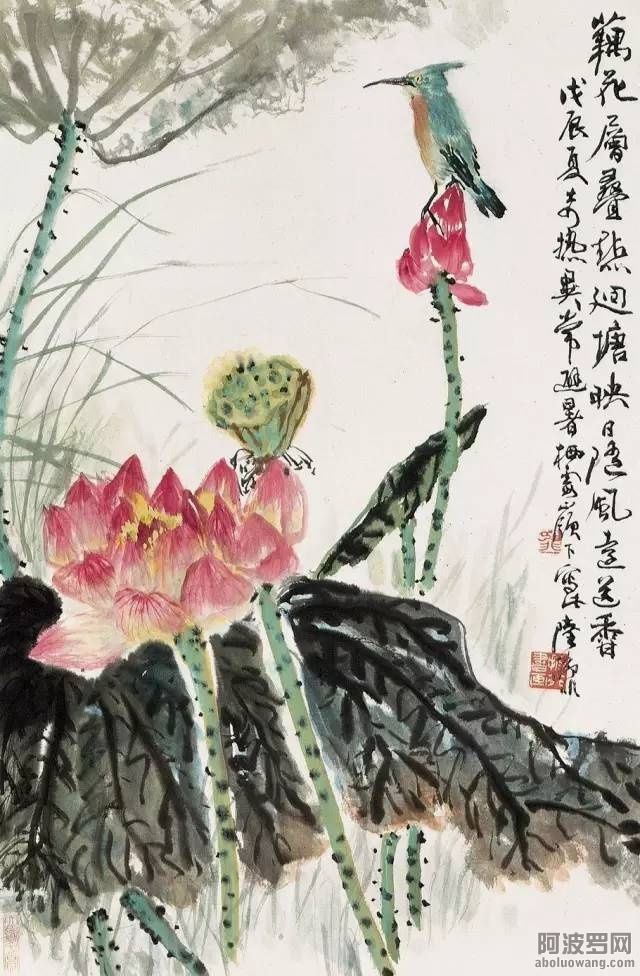 藕花層疊點迴塘映日隨風遠送香
戊辰夏熱異常避暑栖霞嶺下寫陸抑非
阿波罗网
aboluowang.com